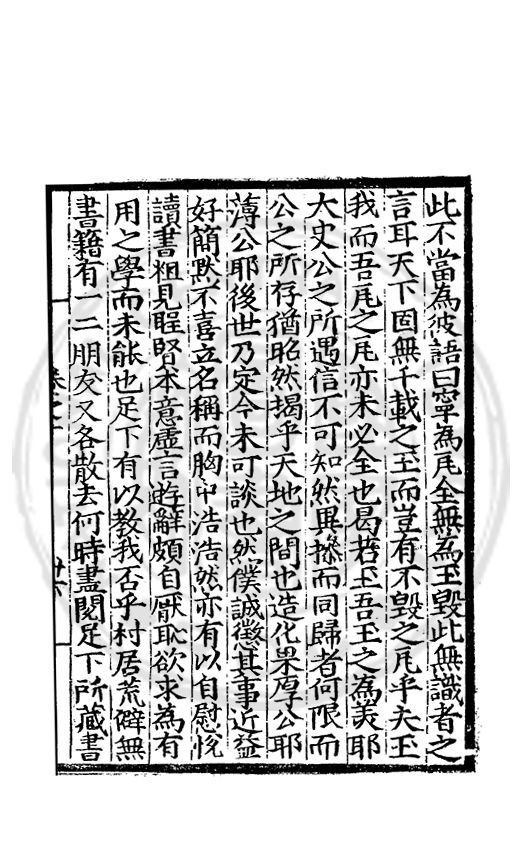 此不當為彼語曰寧為瓦全無為玉毀此無識者之
言耳天下固無千載之玉而豈有不毀之瓦乎夫玉
我而吾瓦之瓦亦未必全也曷若玉吾玉之為美耶
大史公之所遇信不可知然異操而同歸者何限而
公之所存猶昭然揭乎天地之間也造化果厚公耶
薄公耶後世乃定今未可談也然僕誠懲其事近益
好簡默不喜立名稱而胸中浩浩然亦有以自慰悅
讀書粗見聖賢本意虛言遊辭頗自厭恥欲求為有
用之學而未能也足下有以教我否乎村居荒僻無
書籍有一二朋友又各散去何時盡閱足下所藏書